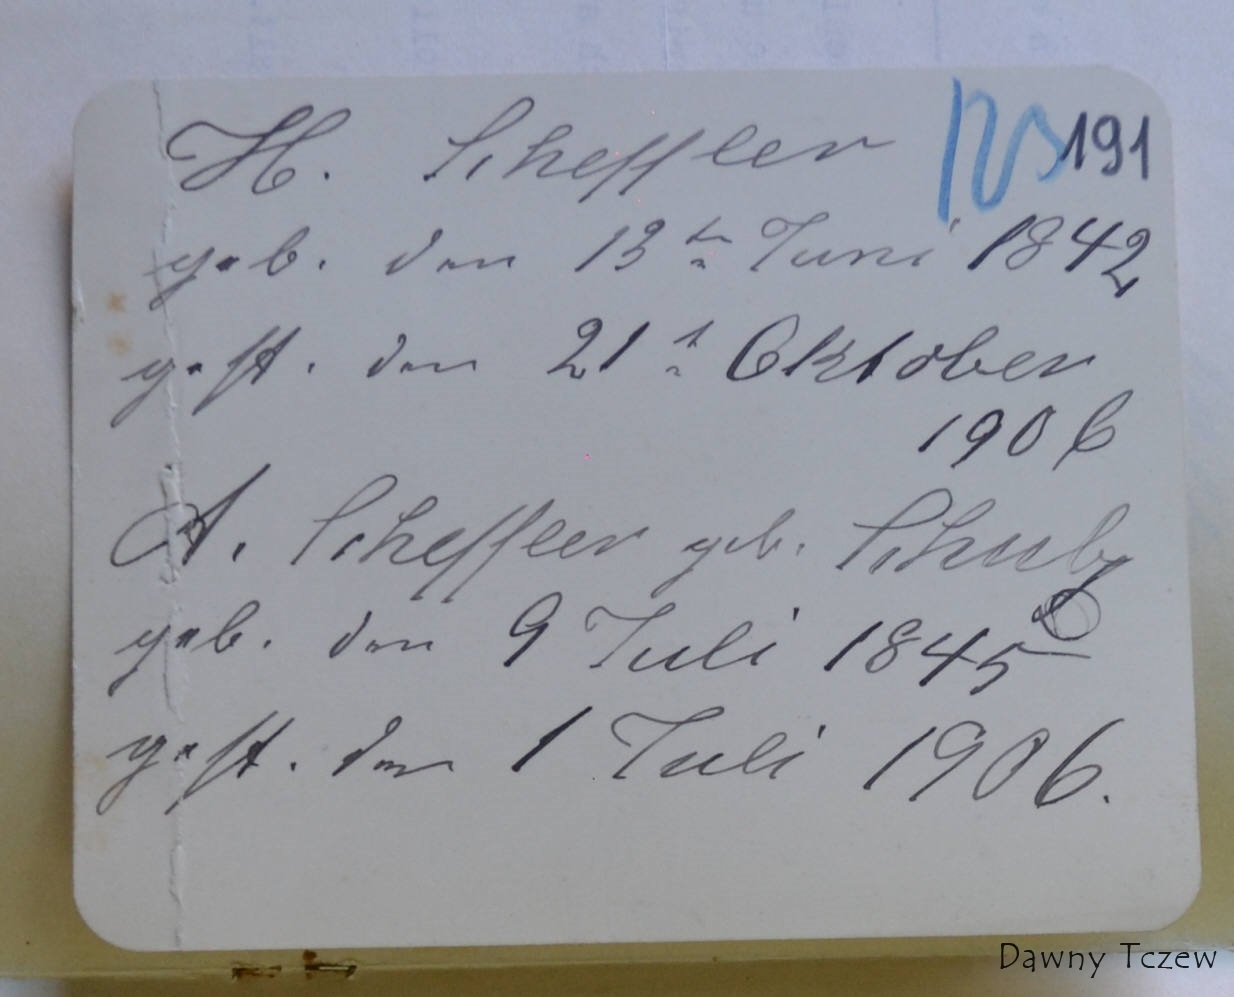 H. Scheffler 191
geb. den 13ten Juni 1842
gest. den 21t Oktober
1906
A. Scheffler geb. Schulz
geb. den 9 Juli 1845
gest. den 1 Juli 1906.
Dawny Tczew